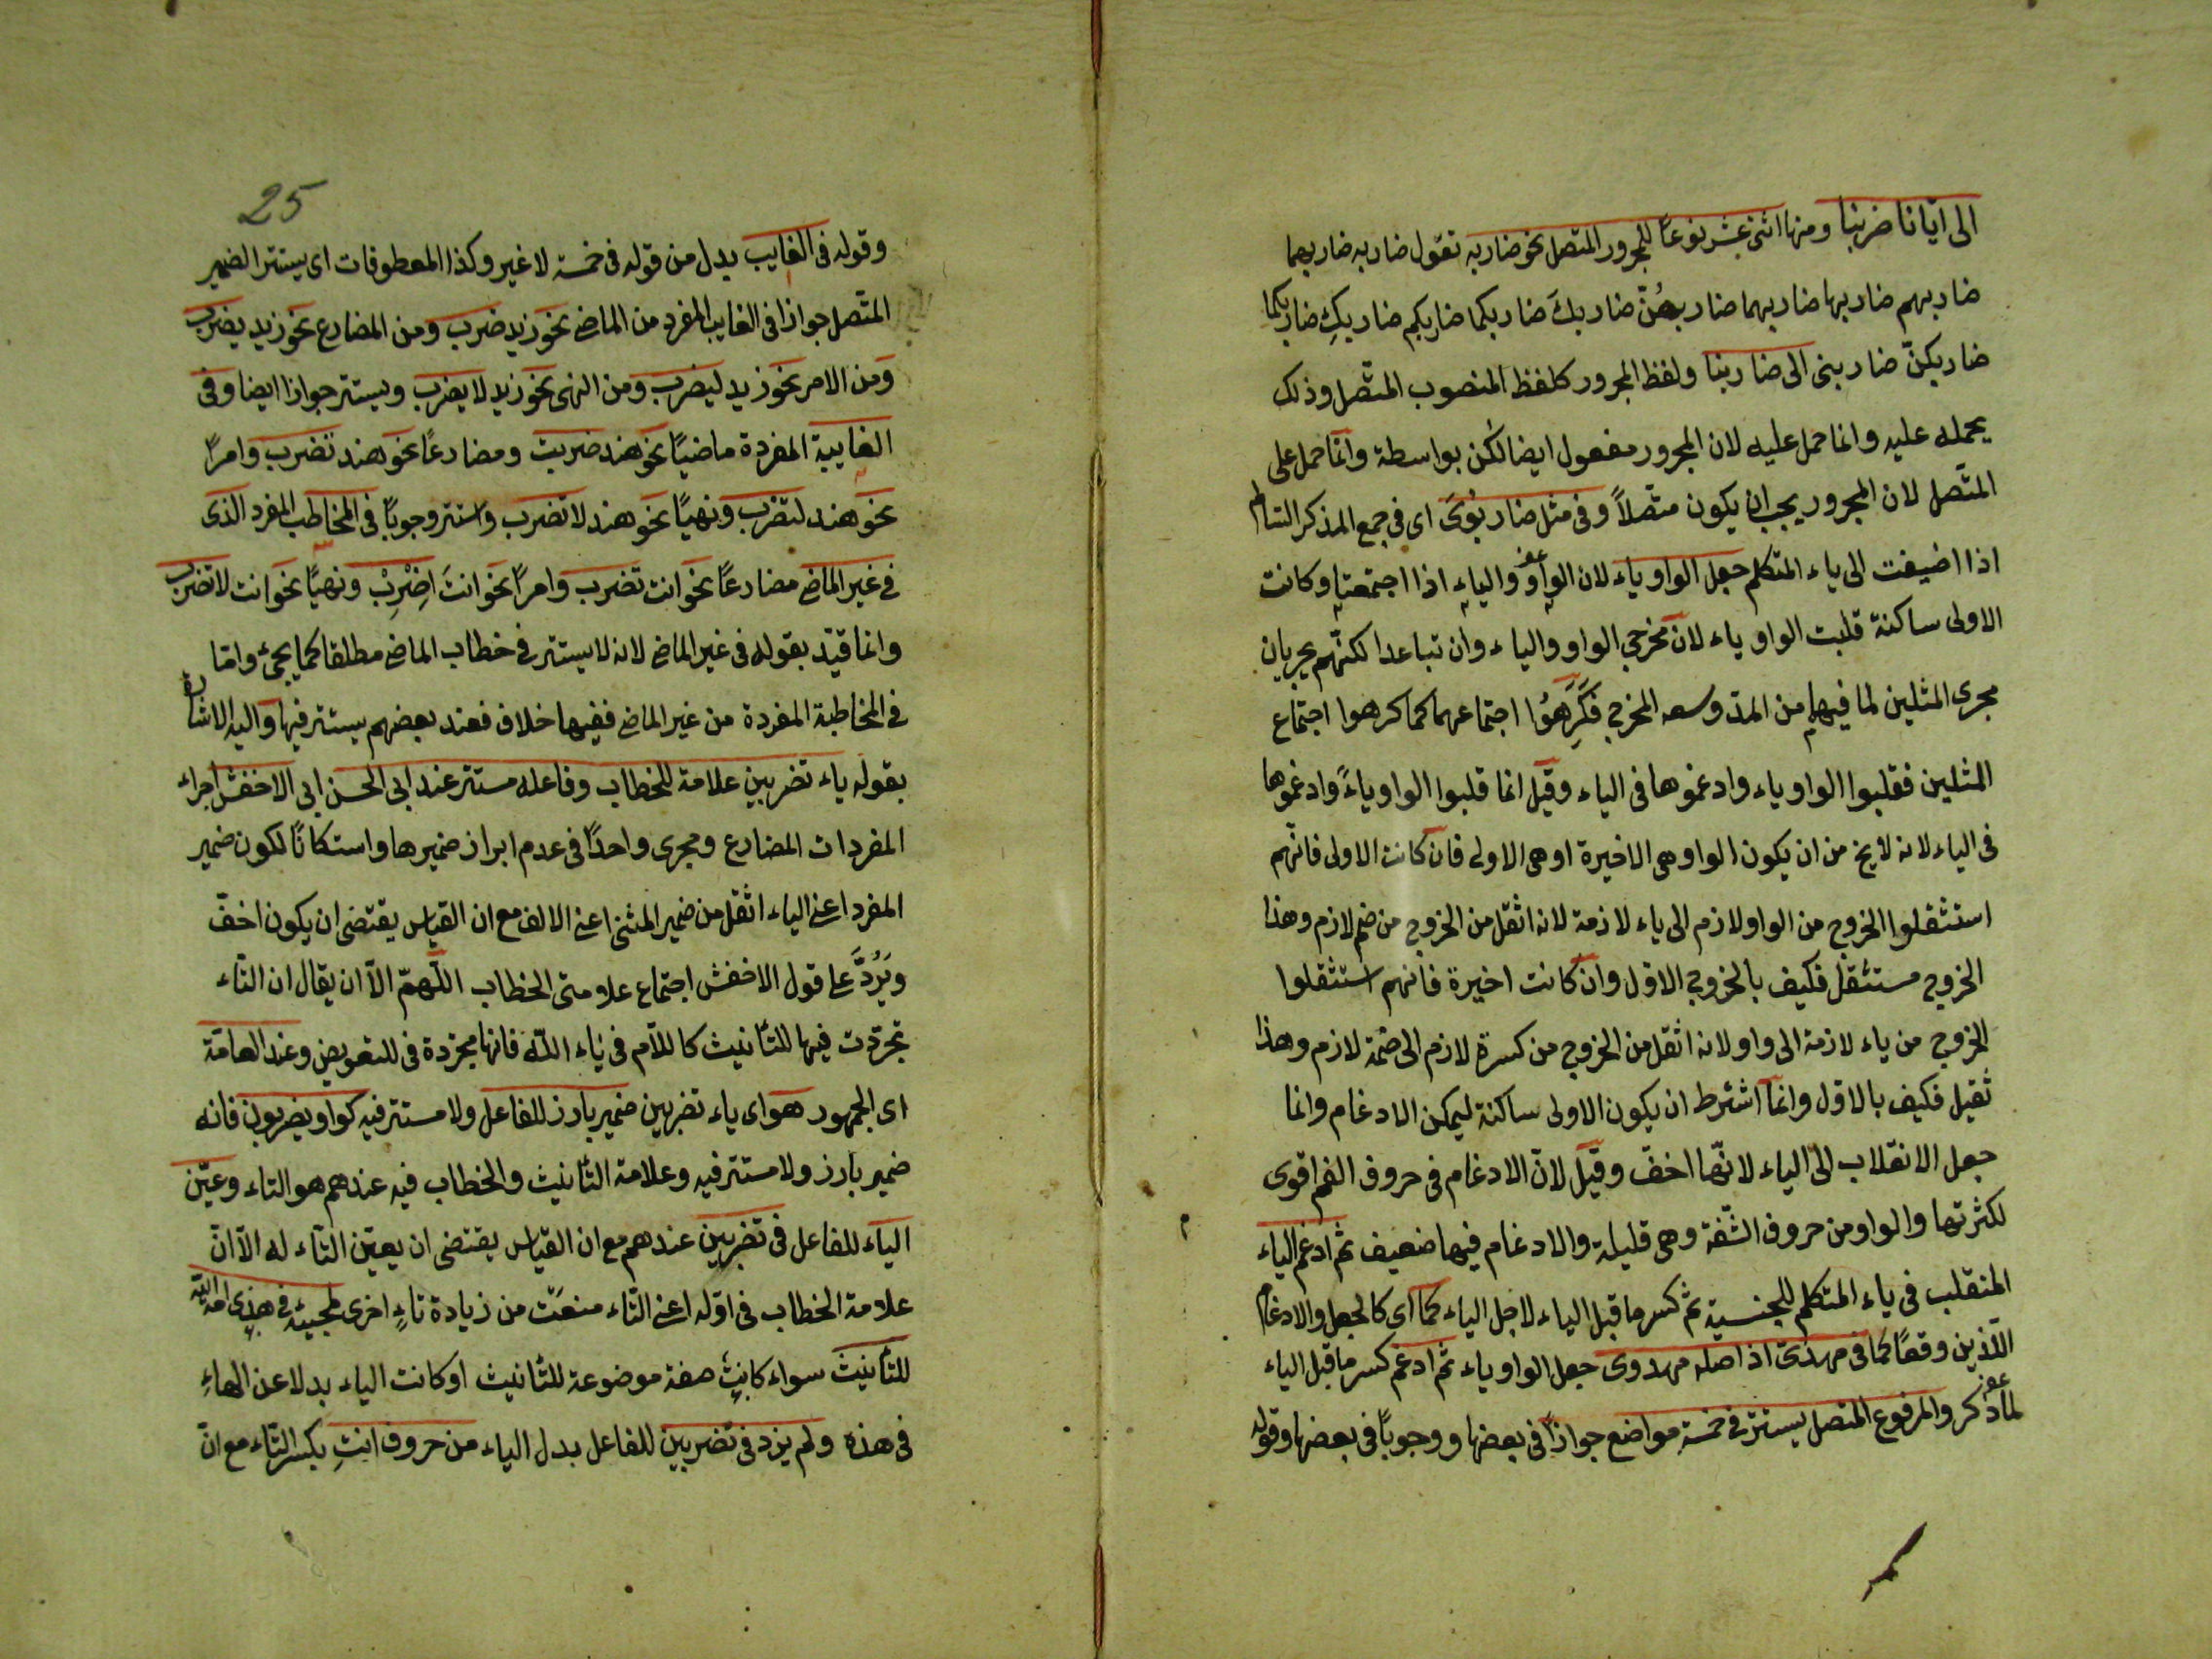 الى ايّانا ضربنا ومنها اثنى عشر نوعًا للمجرور المتصل نحو ضاربه تقول ضاربه ضاربهما
ضاربهم ضاربها ضاربهما ضاربهُنّ ضاربكَ ضاربكما ضاربكم ضاربكِ ضاربكما
ضاربكنّ ضاربى الى ضاربنا ولفظ المجرور كلفظ المنصوب المتّصل وذلك
بحمله عليه وانما حمل عليه لان المجرور مفعول ايضا لكن بواسطة وانما حمل على
المتّصل لان المجرور يجب ان يكون متّصلاً وفى مثل ضاربوىَ اى فى جمع المذكر السالم
اذا اضيفت الى ياء المتكلم جعل الواو ياء لان الواو والياء اذا اجتمعتا وكانت
الاولى ساكنة قلبت الواو ياء لان مخرجى الواو والياء وان تباعدا لكنّهم يجريان
مجرى المثلين لما فيهما من المدّ وسعه المخرج فكَرِهُوا اجتماعهما كما كرهوا اجتماع
المثلين فقلبوا الواو ياء وادغموها فى الياء وقيل انما قلبوا الواو ياءً وادغموها
فى الياء لانه لا يخ من ان يكون الواو هى الاخيرة او هى الاولى فان كانت الاولى فانّهم
استثقلوا الخروج من الواو لازم الى ياء لازمة لانه اثقل من الخروج من ضم لازم وهذا
الخروج مستثقل فكيف بالخروج الاول وان كانت اخيرة فانهم استثقلوا
الخروج من ياء لازمة الى واو لانه اثقل من الخروج من كسرة لازم الى ضمّة لازم وهذا
ثقيل فكيف بالاوّل وانما اشترط ان يكون الاولى ساكنة ليمكن الادغام وانما
جعل الانقلاب الى الياء لانّها اخفّ وقيل لانّ الادغام فى حروف الفم اقوى
لكثرتها والواو من حروف الشّفة وهى قليلة والادغام فيها ضعيف ثم ادغم الياء
المنقلب فى ياء المتكلم للجنسية ثم كسر ما قبل الياء لاجل الياء كما اى كالجعل والادغام
اللّذين وقعًا كما فى مهدىّ اذ اصله مهدوى جعل الواو ياء ثم ادغم كسر ما قبل الياء
لما ذكر والمرفوع المتصل يستتر فى خمسة مواضع جوازًا فى بعضها ووجوبًا فى بعضها وقوله
25
وقوله فى الغايب بدل من قوله فى خمسة لا غير وكذا المعطوفات اى يستتر الضمير
المتّصل جوازا فى الغايب المفرد من الماضى نحو زيد ضرب ومن المضارع نحو زيد يضرب
ومن الامر نحو زيد ليضرب ومن النهى نحو زيد لا يضرب ويستتر جوازا ايضا وفى
الغايبة المفردة ماضيًا نحو هند ضربت ومضارعًا نحو هند تضرب وامرًا
نحو هند لتضرب ونهيًا نحو هند لا تضرب واستتر وجوبًا فى المخاطب المفرد الذى
فى غير الماضى مضارعًا نحو انت تضرب وامرًا نحو انتَ اِضْرِبْ ونهيًا نحو انت لا تضرب
وانما قيّد بقوله فى غير الماضى لانه لا يستتر فى خطاب الماضى مطلقا كما يجئ وامّا
فى المخاطبة المفردة من غير الماضى ففيها خلاف فعند بعضهم يستتر فيها واليه الاشارة
بقوله ياء تضربين علامة للخطاب وفاعله مستتر عند ابى الحسن ابى الاخفش اجراء
المفردات المضارع ومجرى واحدًا فى عدم ابراز ضميرها واستكانًا لكون ضمير
المفرد اعنى الياء اثقل من ضمير المثنى اعنى الالف مع ان القياس يقتضى ان يكون اخفّ
ويَرُدّ على قول الاخفش اجتماع علامتى الخطاب اللّهمّ الّا ان يقال ان التّاء
تجرّدت فيها للتّأنيث كاللّام فى ياء اللّه فانها مجرّدة فى للتعويض وعند العامّة
اى الجمهور هو اى ياء تضربين ضمير بارز للفاعل ولا مستتر فيه كواو يضربون فانه
ضمير بارز ولا مستتر فيه وعلامة التأنيث والخطاب فيه عندهم هو التاء وعيّن
الياء للفاعل فى تضربين عندهم مع ان القياس يقتضى ان يعيّن التّاء له الّا انّ
علامة الخطاب فى اوّله اعنى التّاء منعت من زيادة تاءٍ اخرى لمجيئه فى هذى امة اللّه
للتأنيث سواء كانت صفة موضوعة للتّانيث او كانت الياء بدلا عن الهاءِ
فى هذه ولم يزد فى تضربين للفاعل بدل الياء من حروف انتِ بكسر التّاء مع انّ